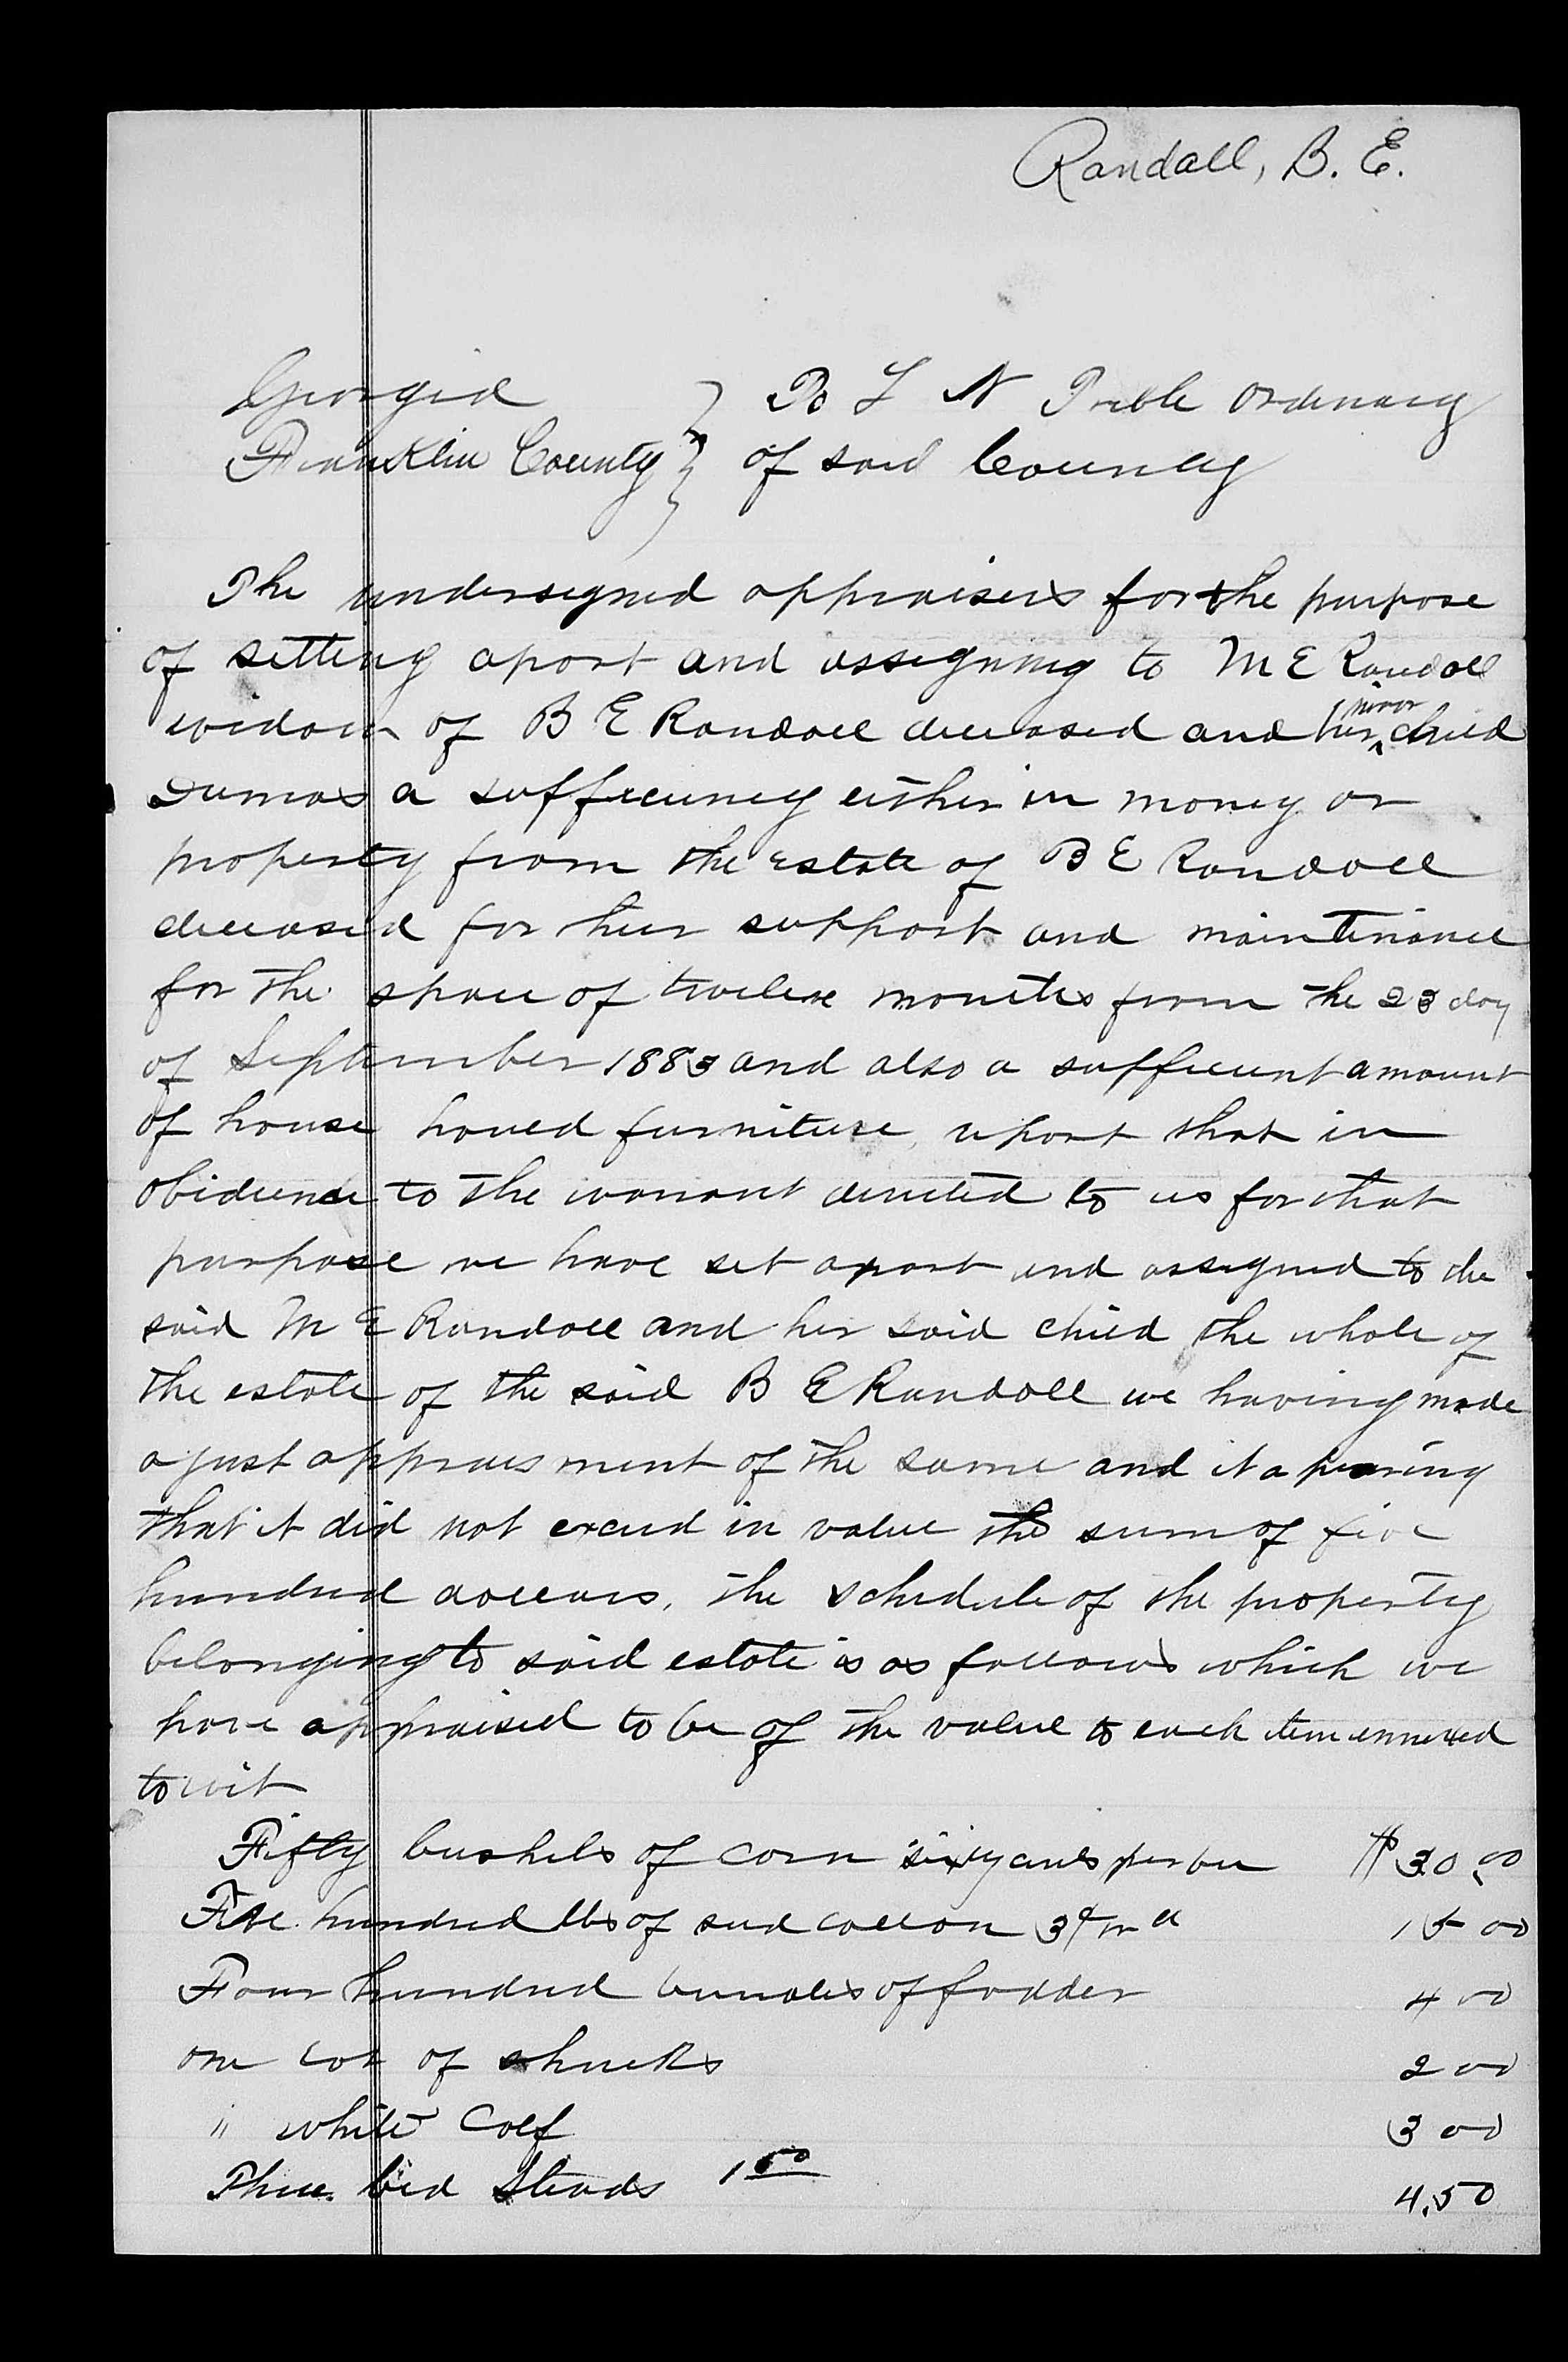 Randall, B. E.
Georgia } To L N Tribble Ordinary
Franklin County } of said County
The undersigned appraisers for the purpose
of setting apart and assigning to M E Randall
widow of B E Randall deceased and her minor child
Dumas a sufficiency either in money or
property from the estate of B E Randall
deceased for her support and maintinance
for the space of twelve months from the 23 day
of September 1883 and also a sufficient amount
of house hould furniture, report that in
obidience to the warrant directed to us for that
purpose we have set apart and assigned to the
said M E Randall and her said child the whole of
the estate of the said B E Randall we having made
a just appraisment of the same and it apearing
that it did not exceed in value the sum of five
hundred dollars, the schedule of the property
belonging to said estate is as follows which we
have appraised to be of the value to each item annexed
to wit
Fifty bushels of corn sixty cents per bu $30.00
Five hundred lbs of seed cotton 3¢ 15 00
Four hundred bundles of fodder 4 00
one lot of shucks 2 00
" white Calf 3 00
Three bed Steads 1 50 4.50